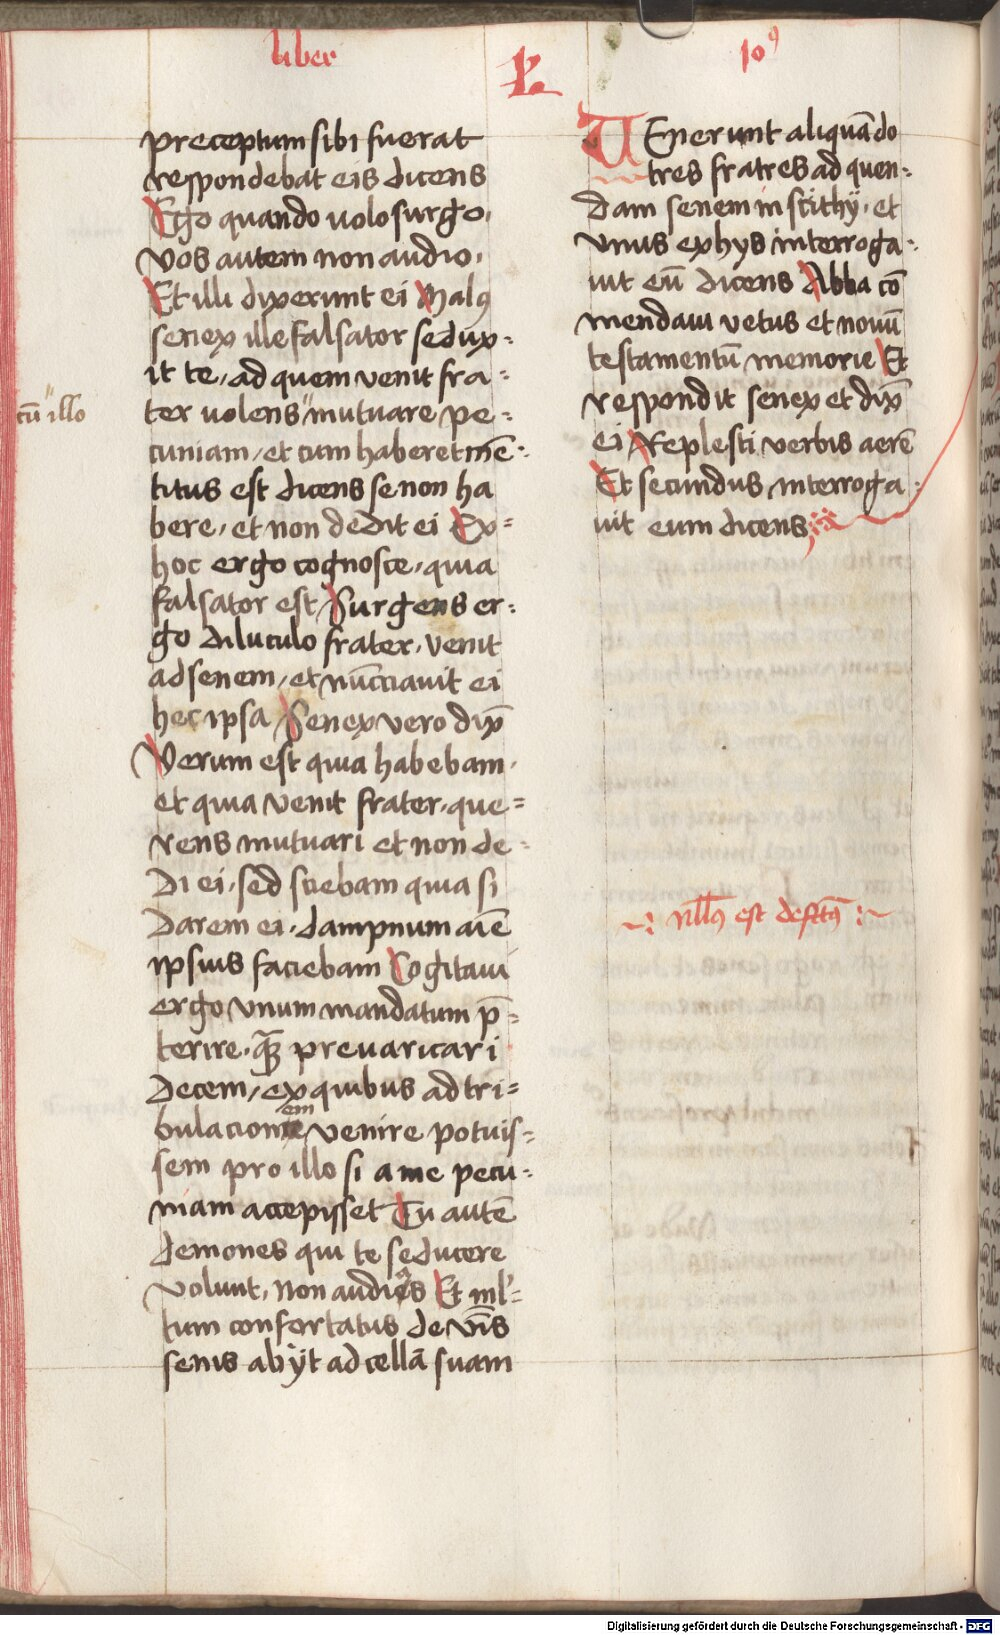 liber
10⁹
preceptum sibi fuerat
respondebat eis dicens
Ego quando uolo surgo.
vos autem non audio.
Et illi dixerunt ei Malꝰ
senex ille falsator sedux⸗
it te, ad quem venit fra⸗
cū illo
ter uolens "mutuare pe⸗
cuniam, et cum haberet mē⸗
titus est dicens se non ha
bere, et non dedit ei Ex⸗
hoc ergo cognosce, quia
falsator est Surgens er⸗
go diluculo frater, venit
ad senem, et nūcciauit ei
hec ipsa Senex vero dix̄
Verum est quia habebam.
et quia venit frater, que⸗
rens mutuari et non de⸗
di ei, sed sciebam quia si
darem ei, dampnum aīe
ipsius faciebam Cogitaui
ergo vnum mandatum p̄⸗
terire, quā prevaricari
decem, ex quibus ad tri⸗
bulacionem venire potuis⸗
sem pro illo si a me pecu⸗
niam accepisset Tu autē
demones qui te seducere
volunt, non audias Et ml'⸗
tum confortatus de v̄bis
senis abijt ad cellā suam
VEnerunt aliquādo
tres fratres ad quen⸗
dam senem in scithy, et
vnus ex hys interroga⸗
uit eū dicens Abba cō
mendaui vetus et nouū
testamentū memorie Et
respondit senex et dix̄
ei Replesti verbis aerē
Et secundus interroga⸗
uit eum dicens
~: nllꝰ est defctꝰ :~
Digitalisierung gefördert durch die Deutsche Forschungsgemeinschaft - DFG